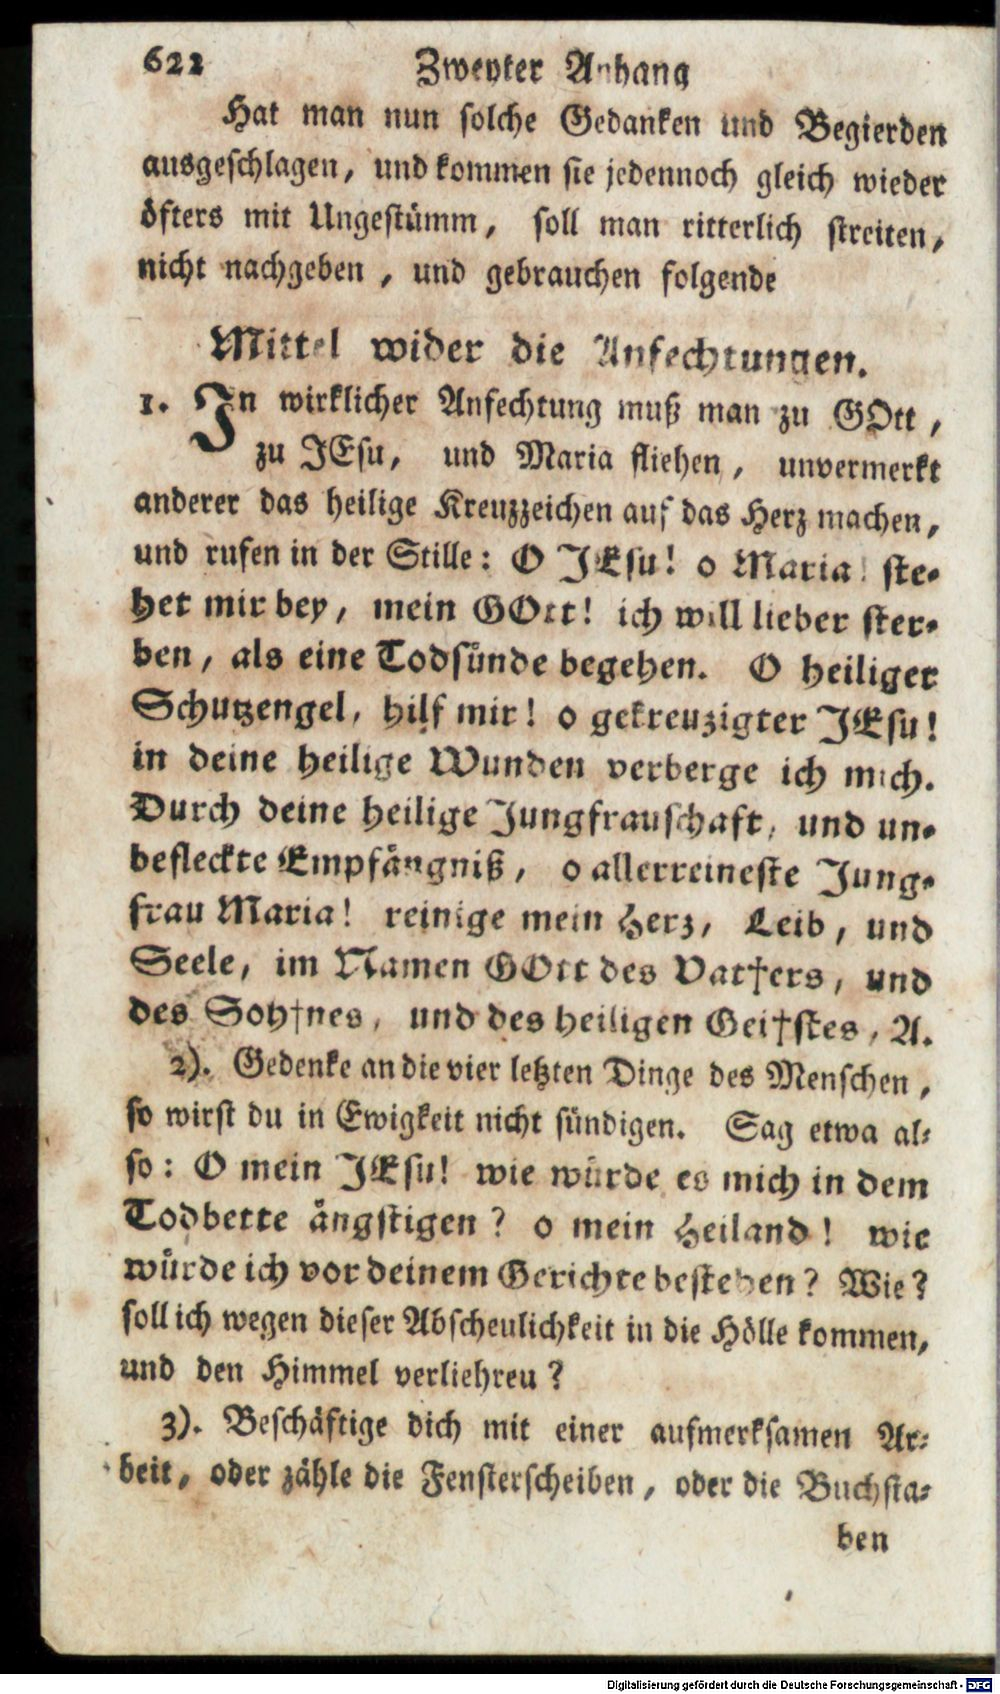 622 Zweyter Anhang
Hat man nun solche Gedanken und Begierden
ausgeschlagen, und kommen sie jedennoch gleich wieder
öfters mit Ungestümm, soll man ritterlich streiten,
nicht nachgeben, und gebrauchen folgende
Mittel wider die Anfechtungen.
1. In wirklicher Anfechtung muß man zu GOtt,
zu JEsu, und Maria fliehen, unvermerkt
anderer das heilige Kreuzzeichen auf das Herz machen,
und rufen in der Stille: O JEsu! o Maria! ste-
het mir bey, mein GOtt! ich will lieber ster-
ben, als eine Todsünde begehen. O heiliger
Schutzengel, hilf mir! o gekreuzigter JEsu!
in deine heilige Wunden verberge ich mich.
Durch deine heilige Jungfrauschaft, und un-
befleckte Empfängniß, o allerreineste Jung-
frau Maria! reinige mein Herz, Leib, und
Seele, im Namen GOtt des Vat†ers, und
des Soh†nes, und des heiligen Gei†stes, A.
2). Gedenke an die vier letzten Dinge des Menschen,
so wirst du in Ewigkeit nicht sündigen. Sag etwa al-
so: O mein JEsu! wie würde es mich in dem
Todbette ängstigen? o mein Heiland! wie
würde ich vor deinem Gerichte bestehen? Wie?
soll ich wegen dieser Abscheulichkeit in die Hölle kommen,
und den Himmel verliehreu?
3). Beschäftige dich mit einer aufmerksamen Ar-
beit, oder zähle die Fensterscheiben, oder die Buchsta-
ben
Digitalisierung gefördert durch die Deutsche Forschungsgemeinschaft - DFG